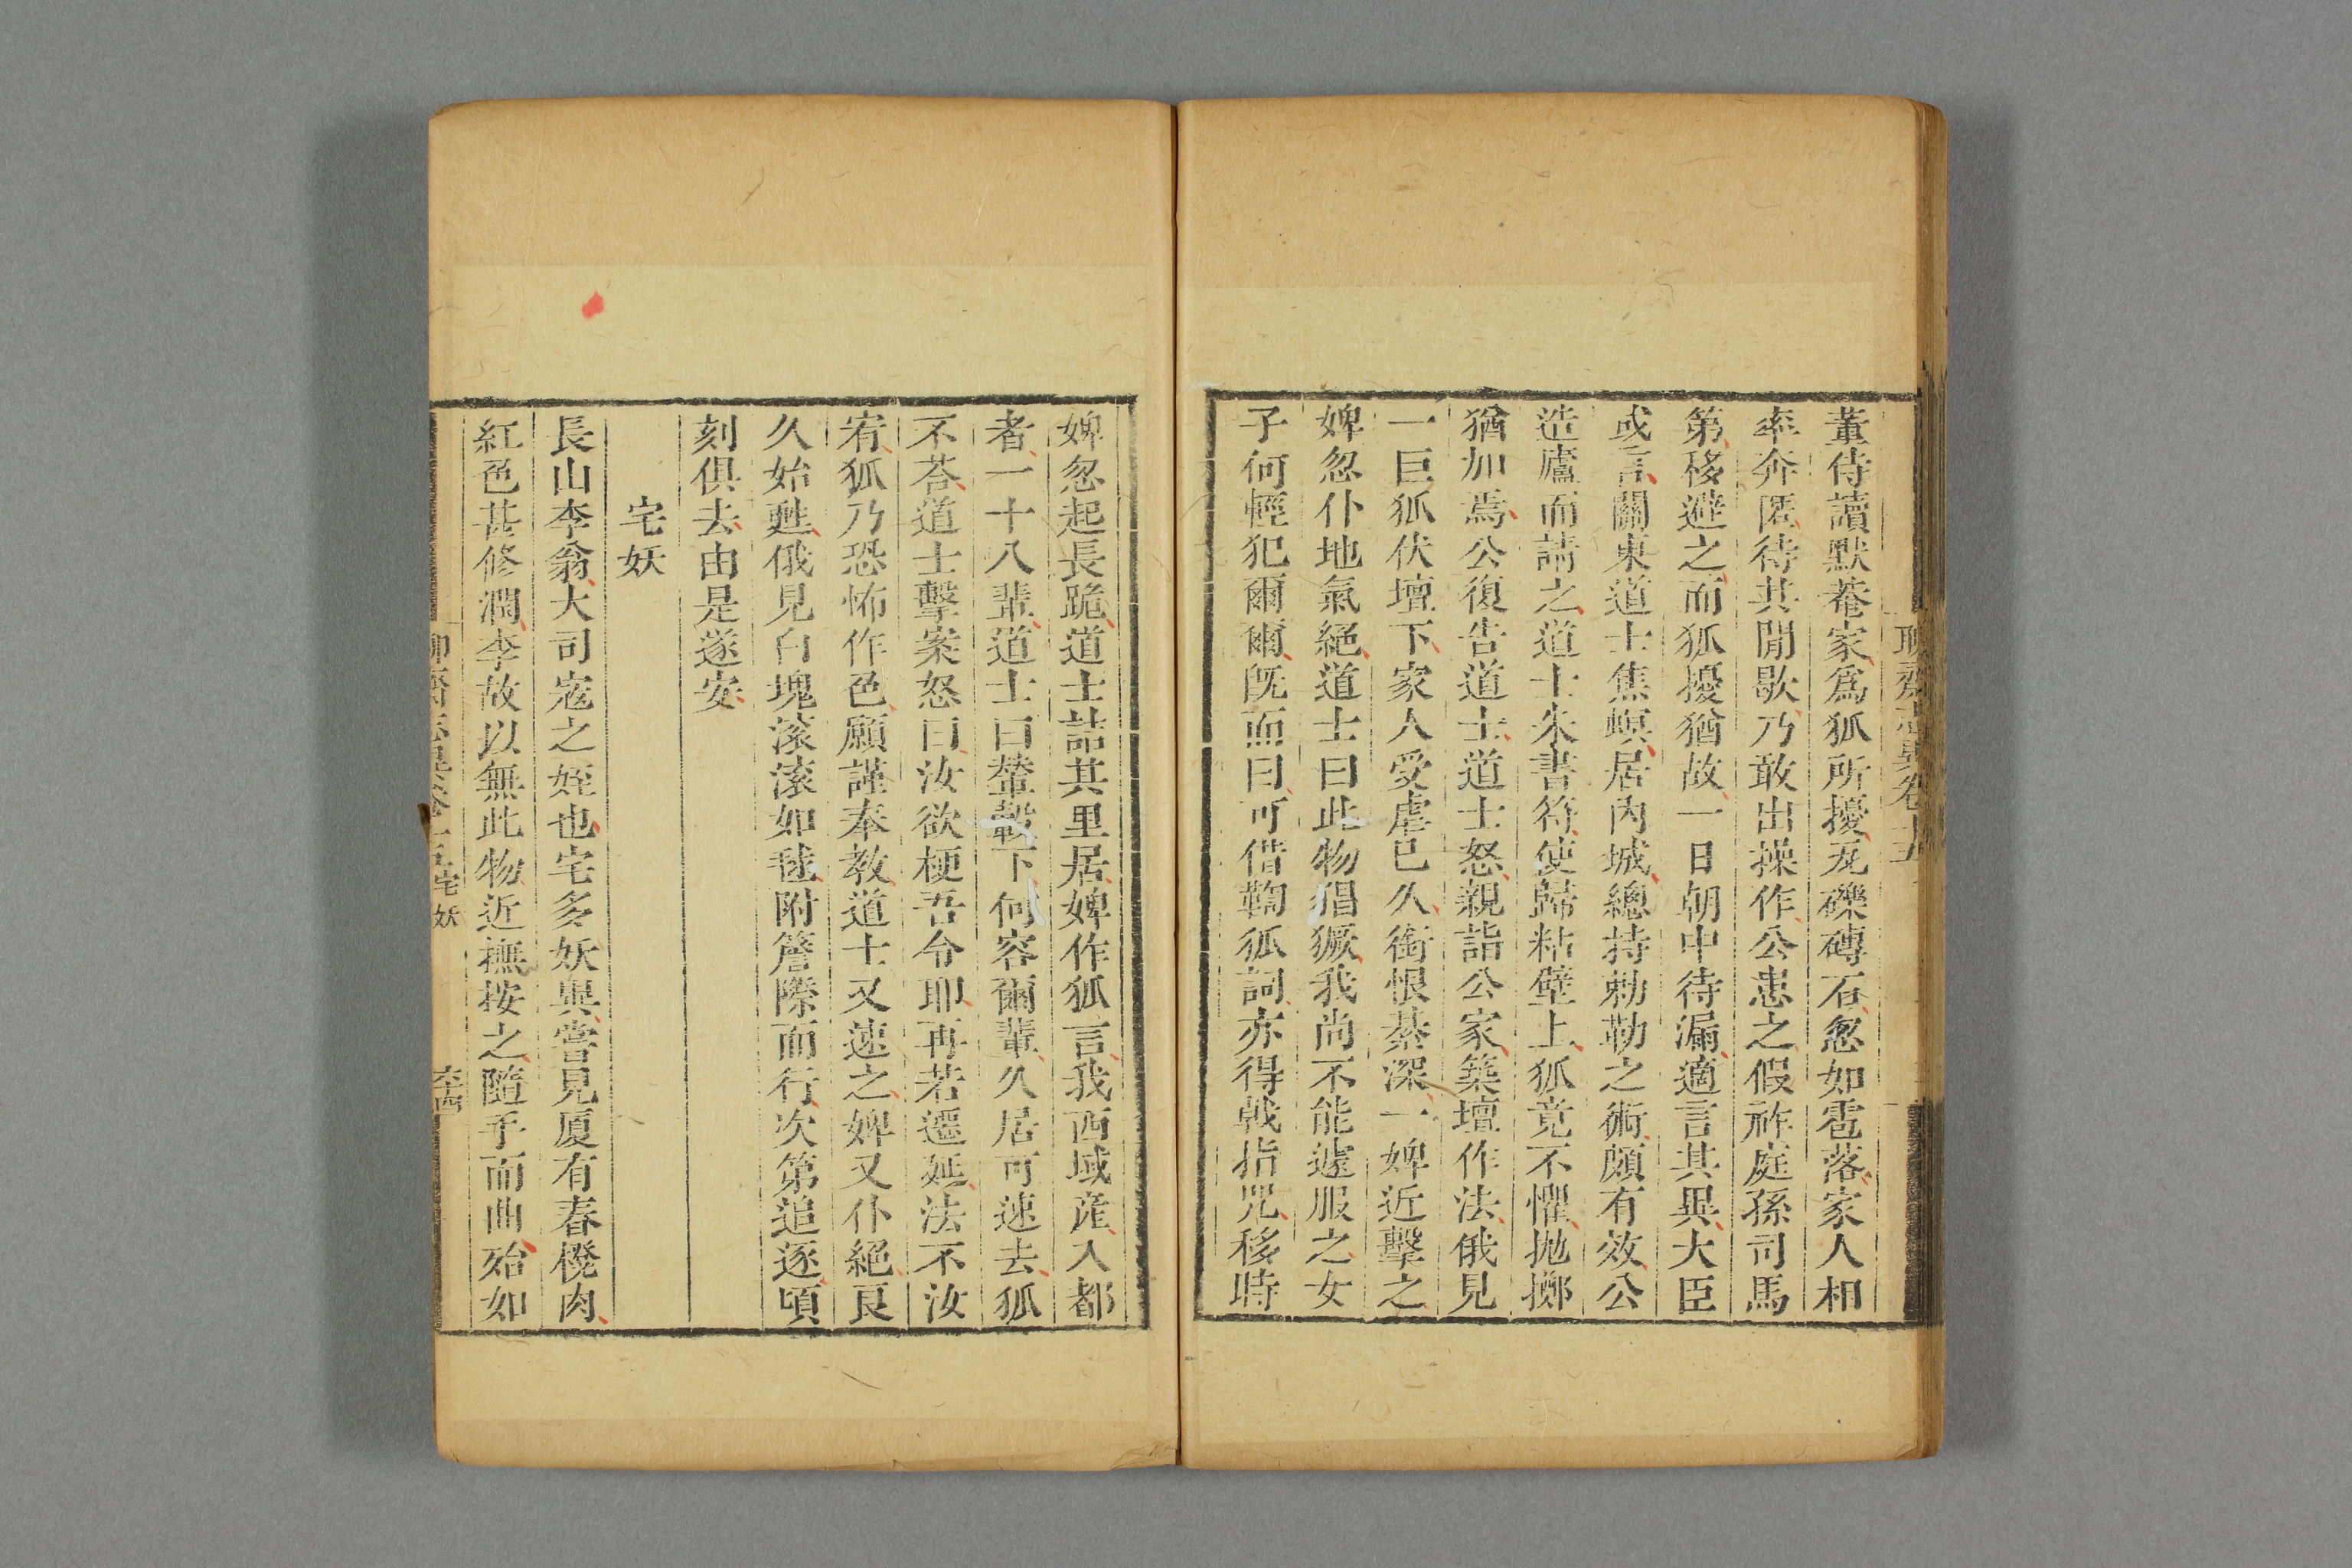 董侍讀默菴家爲狐所擾瓦礫磚石忽如雹落家人相
率奔匿待其閒歇乃敢出操作公患之假祚庭孫司馬
第移避之而狐擾猶故一日朝中待漏適言其異大臣
或言關東道士焦螟居內城總持勅勒之術頗有效公
造廬而請之道士朱書符使歸粘壁上狐竟不懼拋擲
猶加焉公復告道士道士怒親詣公家築壇作法俄見
一巨狐伏壇下家人受虐已久銜恨綦深一婢近擊之
婢忽仆地氣絕道士曰此物猖獗我尚不能遽服之女
子何輕犯爾爾旣而曰可借鞫狐詞亦得戟指咒移時
婢忽起長跪道士詰其里居婢作狐言我西域産入都
者一十八輩道士曰輦轂下何容爾輩久居可速去狐
不荅道士擊案怒曰汝欲梗吾令耶再若遷延法不汝
宥狐乃恐怖作色願謹奉教道士又速之婢又仆絕良
久始甦俄見白塊滚滚如毬附簷際而行次第追逐頃
刻俱去由是遂安
宅妖
長山李翁大司寇之姪也宅多妖異嘗見廈有春櫈肉
紅色甚修潤李故以無此物近撫按之隨手而曲殆如
宅妖